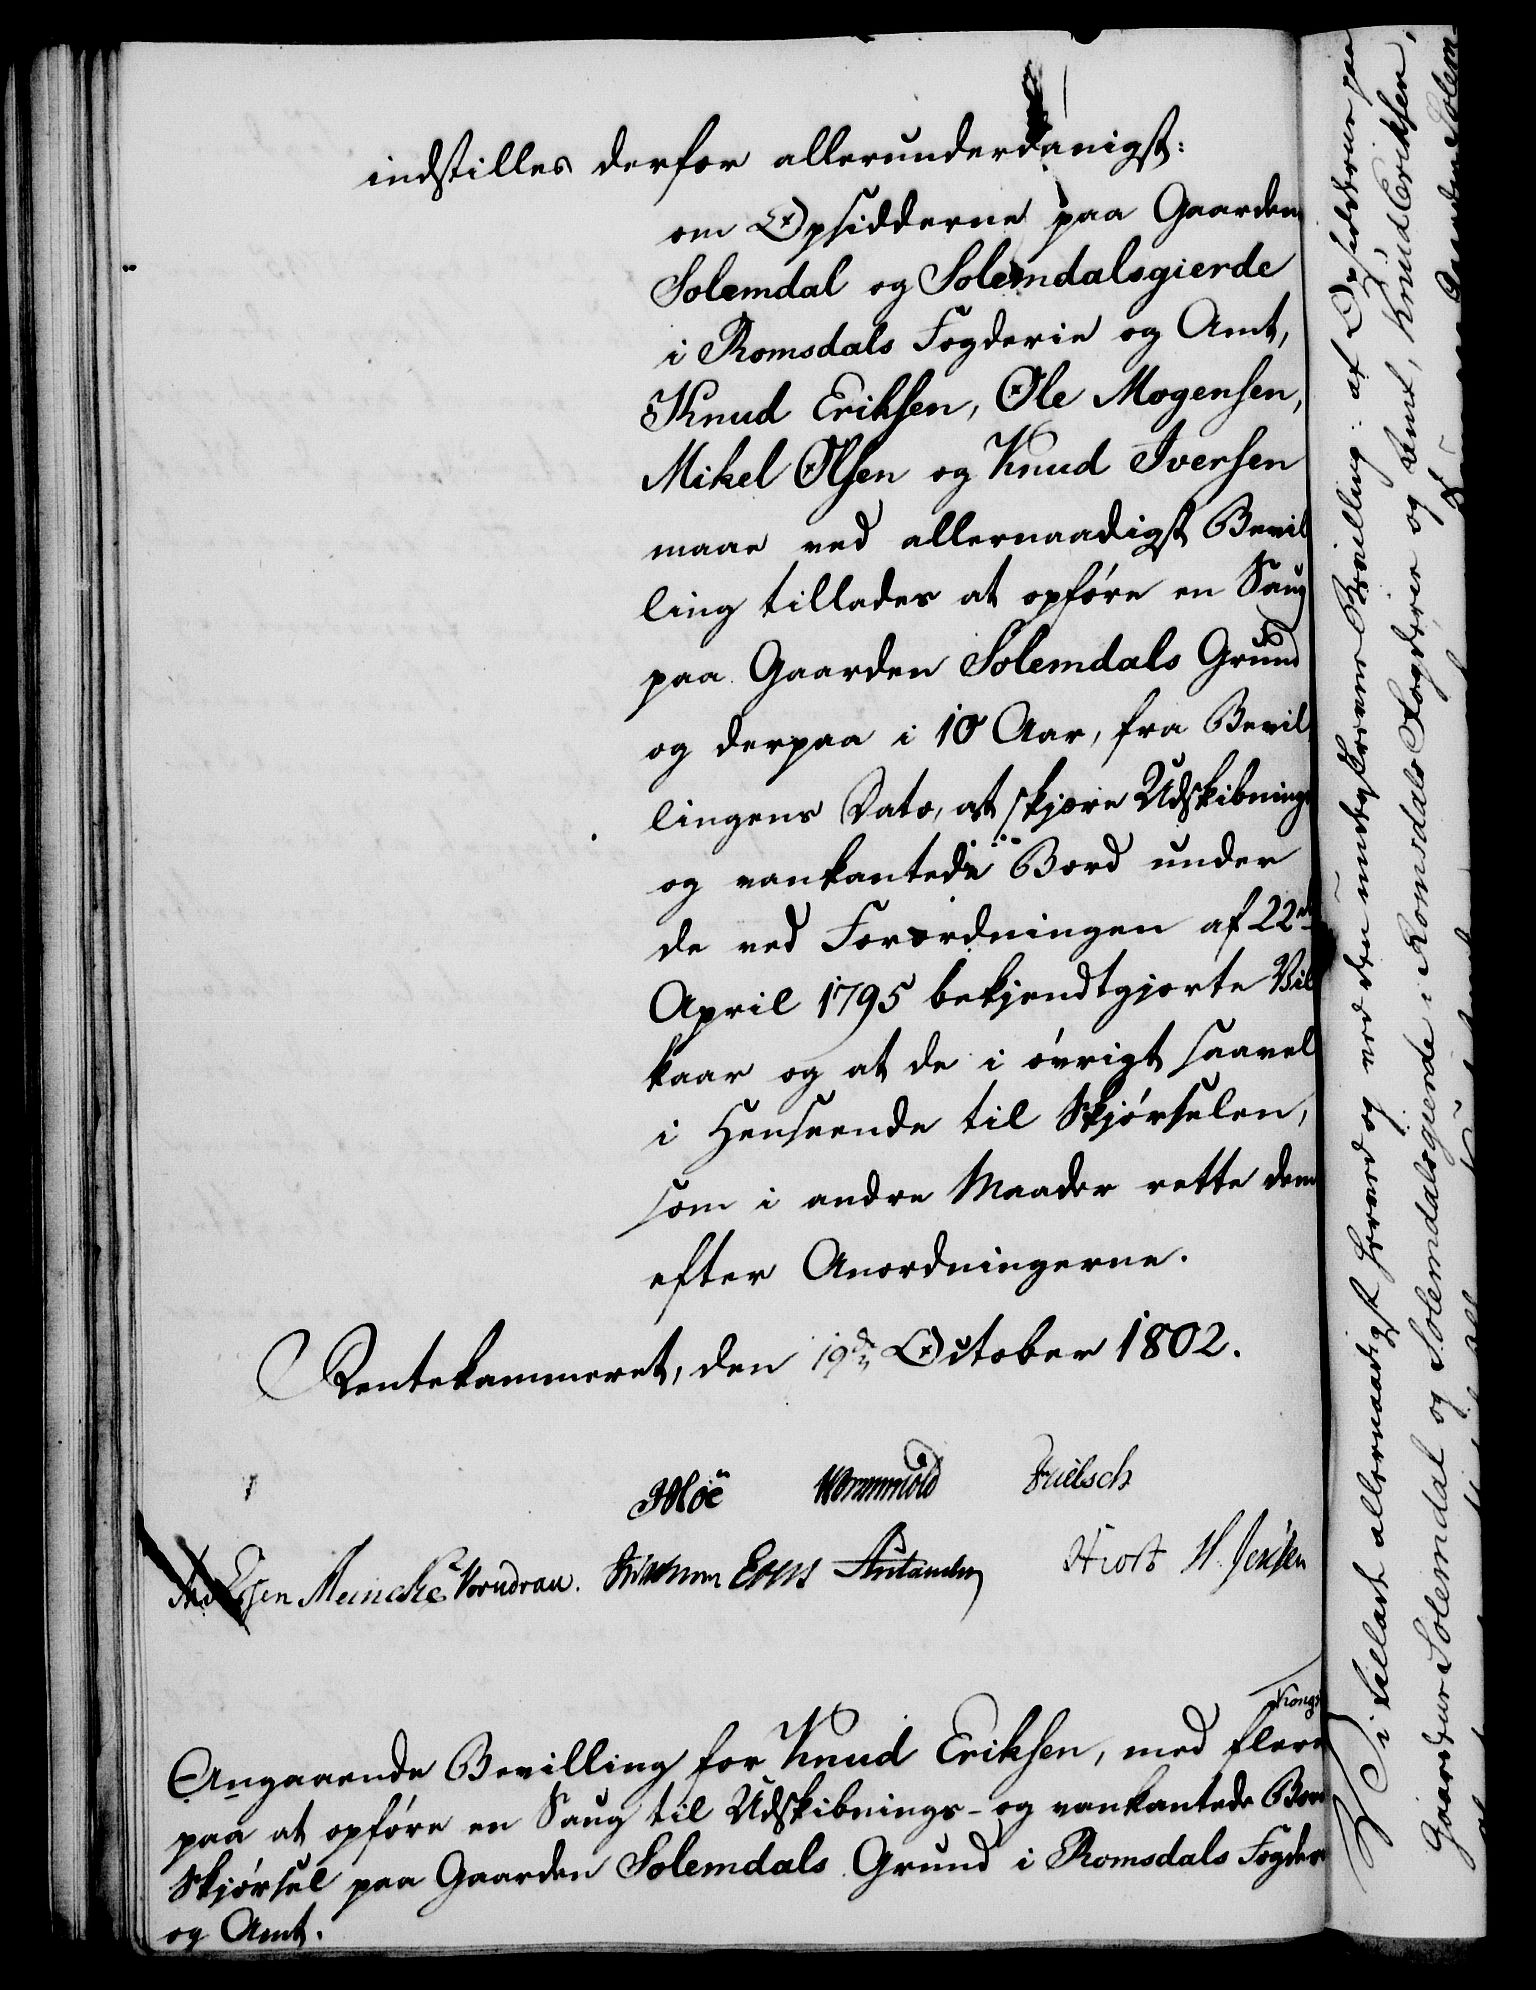 indstilles derfor allerunderdanigst:
om Opsidderne paa Gaarden
Solemdal og Solemdalsgierde
i Romsdals Fogderie og Amt,
Knud Eriksen, Ole Mogensen,
Mikel Olsen og Knud Iversen
maae ved allernaadigst Bevil
ling tillades at opføre en Saug
paa Gaarden Solemdals Grund
og derpaa i 10 Aar, fra Bevil
lingens Dato, at skjære Udskibnings
og vankantede Bord under
de ved Forordningen af 22de
April 1795 bekjendtgjorte Vil
kaar og at de i øvrigt saavel
i Henseende til Skjørselen,
som i andre Maader rette dem
efter Anordningerne.
Rentekammeret, den 19de October 1802.
Wormskiold
Meincke Vorndran. Hiort H. Jensen
Angaaende Bevilling for Knud Eriksen, med flere
paa at opføre en Saug til Udskibnings- og vankantede Bord
Skjørsel paa Gaarden Solemdals Grund i Romsdals Fogder
og Amt.
Vi tillade allernaadigst herved og ved den underskrevne Bevilling: at Opsidderne paa
Gaardene Solemdal og Solemdalsgierde i Romsdals Fogderie og Amt, Knud Eriksen,